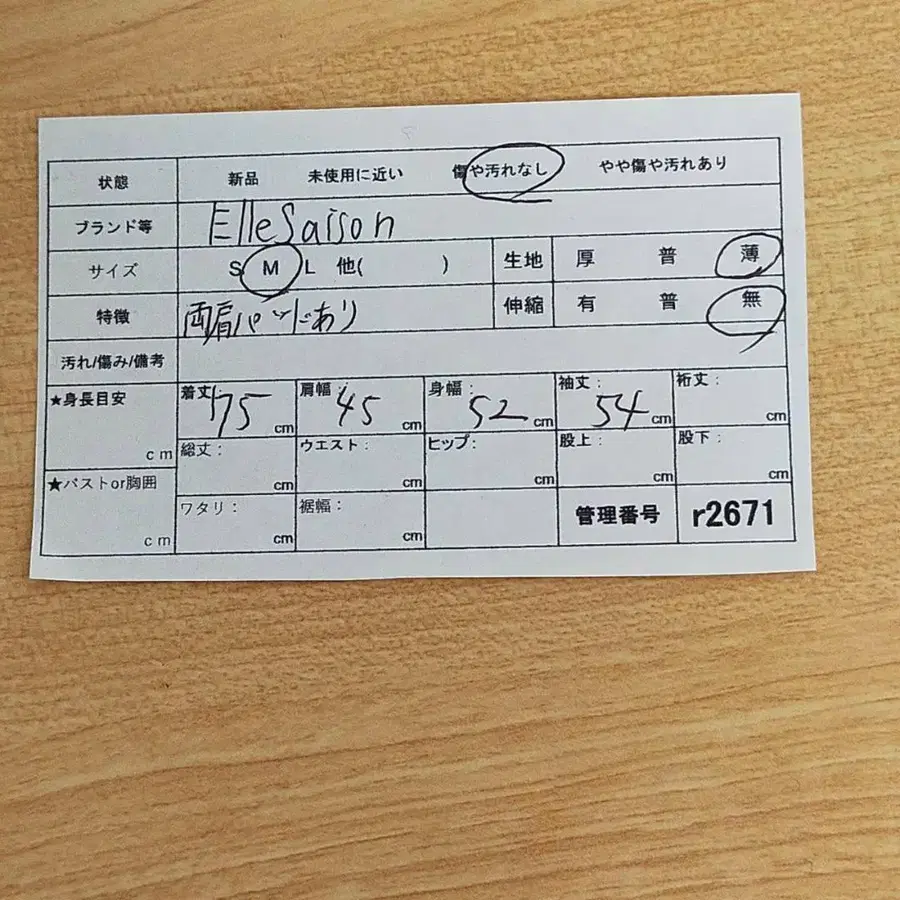 状態 新品 未使用に近い 傷や汚れなし やや傷や汚れあり
ブランド等 ElleSaison
サイズ S M L 他( ) 生地 厚 普 薄
特徴 両肩パッドあり 伸縮 有 普 無
汚れ/傷み/備考
★身長目安 cm 着丈: 75 cm 肩幅: 45 cm 身幅: 52 cm 袖丈: 54 cm 裄丈: cm
総丈: cm ウエスト: cm ヒップ: cm 股上: cm 股下: cm
★バストor胸囲 cm ワタリ: cm 裾幅: cm 管理番号 r2671